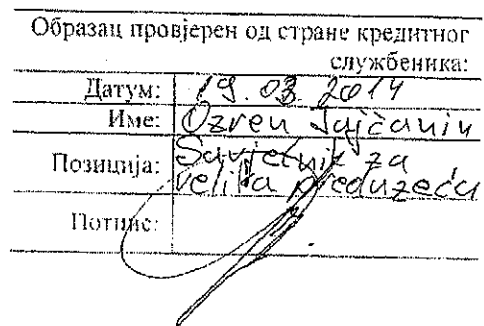 Образац провјерен од стране кредитног
службеника:
Датум: 19.03.2014
Име: Ozren Jajčanin
Позиција: Savjetnik za
velika preduzeća
Потпис: